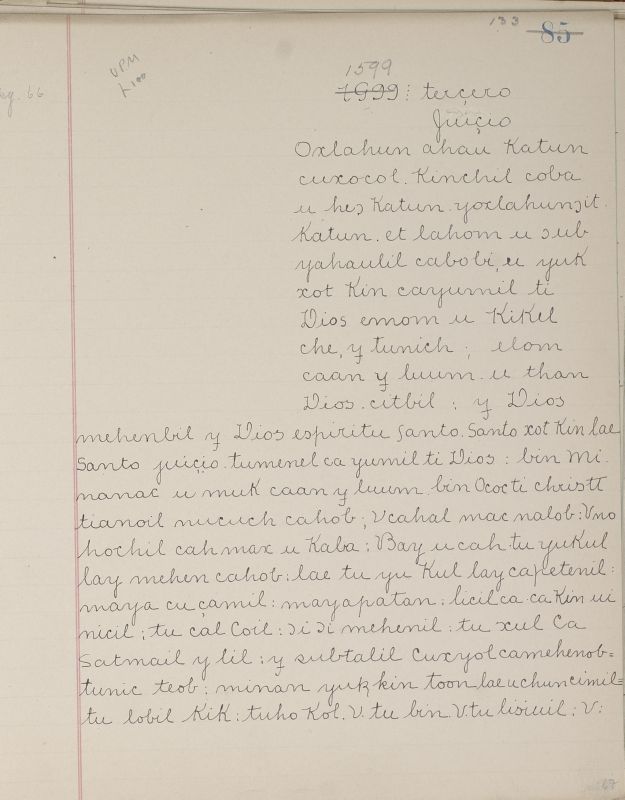 133 85
UPM
1599
eg. 66
1999 : terçero
Juiçio
Oxlahun ahau Katun
cuxocol. Kinchil coba
u heɔ Katun. yoxlahunɔit.
Katun. et lahom u ɔub
yahaulil cabobi, u yuk
xot Kin cayumil ti
Dios emom u KiKel
che, y tunich ; elom
caan y luum. u than
Dios. citbil : y Dios
mehenbil y Dios espiritu santo. Santo xot Kin lae
Santo juiçio. tumenel ca yumil ti Dios : bin mi.
manac u muk caan y luum. bin Ococ ti christt
tianoil nucuch cahob ; Vcahal mac nalob : Vno
hochil cah max u Kaba ; Bay u cah tu yukul
lay mehen cahob : lae tu yu Kul lay capetenil :
maya cu çamil : mayapatan : licil ca ca Kin ui
nicil ; tu cal Coil : ɔi ɔi mehenil : tu xul Ca
Satmail y lil : y subtalil Cuxyol camehenob =
tunic teob ; minan yutz kin toon lae uchun cimil =
tu lobil KiK : tuho Kol. V. tu bin. V. tu liɔiuil ; V :
67